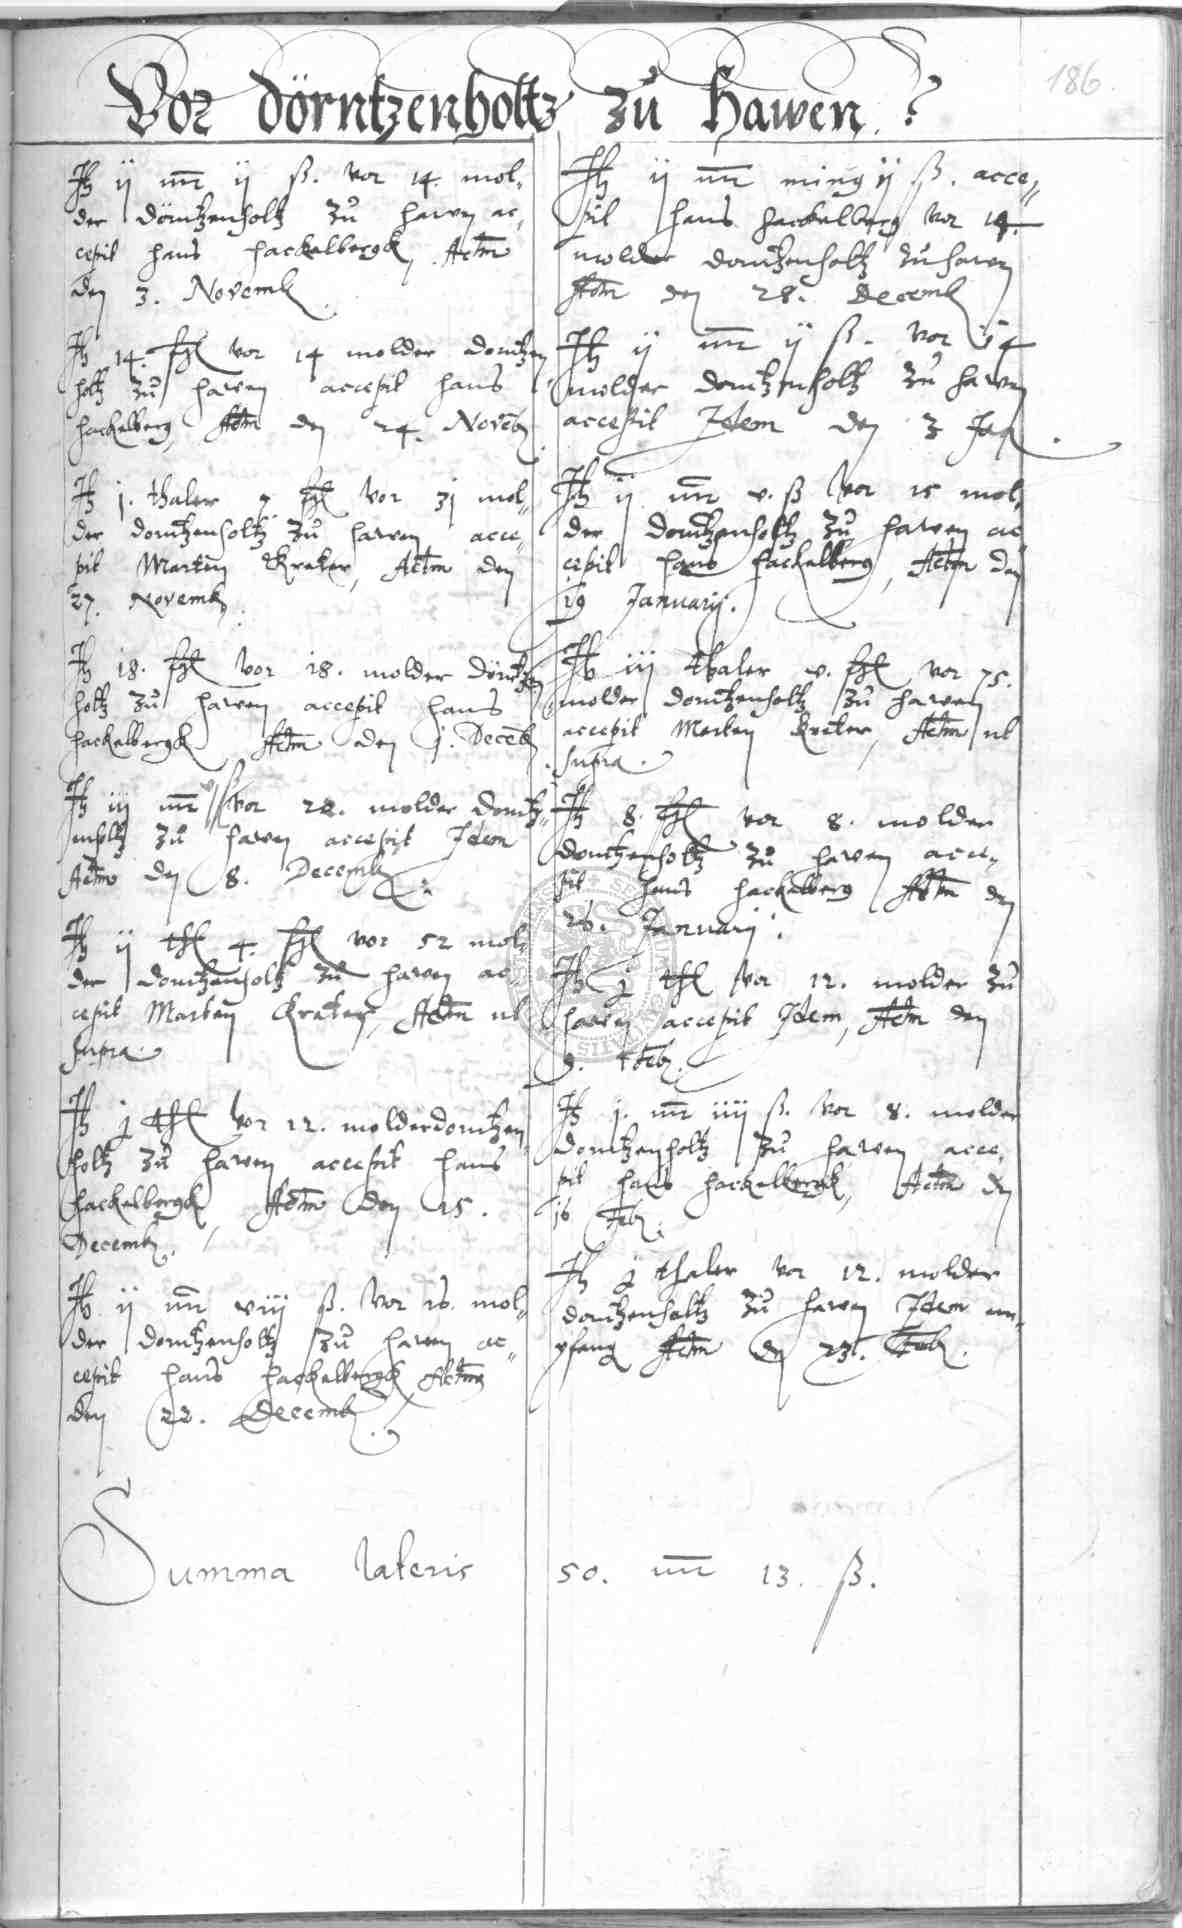 186.
Vor dörntzenholtz zu hawen
It ij mr ij ß. vor 14. mol,
der dörntzenholtz zu hawen ac,
cepit hans hackelbergk, Actm
den 3. Novemb
It 14. fgl vor 14 molder dorntzen
holtz zu hawen accepit hans
hackelberg, Actm den 24. Novēb
It j. thaler 7 fgl vor 31 mol,,
der dorntzenholtz zu hawen acce,,
pit Marten Kreter, Actm den
27. Novemb.
It 18. fgl vor 18. molder dörntzen
holtz zu hawen accepit hans
hackelbergk Actm den j. Decēb
It iij mr v ß vor 22. molder dorntz,,
enholtz zu hawen accepit Idem
Actm den 8. Decemb
It ij thl 4. fgl vor 52 mol,
der dorntzenholtz zu hawen ac,,
cepit Marten Kreter, Actm ut
supra.
It j thl vor 12. molder dorntzen
holtz zu hawen accepit hans
hackelbergk, Actm den 15.
Decemb.
It ij mr viij ß. vor 16. mol,,
der dorntzenholtz zu hawen ac,,
cepit hans hackelbergk Actm
den 22. Decemb
It ij mr ij ß. acce,,
pit hans hackelberg vor 14.
molder dorntzenholtz zu hawen
Actm den 28. Decemb
It ij mr ij ß. vor 14
molder dorntzenholtz zu hawen
accepit Idem den 3 Jan.
It ij mr v. ß vor 15 mol,
der dorntzenholtz zu hawen ac,,
cepit hans hackelberg, Actm den
19 Januarij.
It iij thaler v. fgl vor 75.
molder dorntzenholtz zu hawen
accepit Marten Kreter, Actm ut
supra.
It 8. fgl vor 8. molder
dorntzenholtz zu hawen acce,,
pit hans hackelberg Actm den
26. Januarij.
It j thl vor 12. molder zu
hawen accepit Idem, Actm den
9. Feb.
It j. mr iiij ß. vor 8. molder
dorntzenholtz zu hawen acce,
pit hans hackelbergk, Actm den
16 Feb.
It j thaler vor 12. molder
dorntzenholtz zu hawen Idem em,,
pfang Actm den 23. Feb.
Summa lateris 50. mr 13. ß.